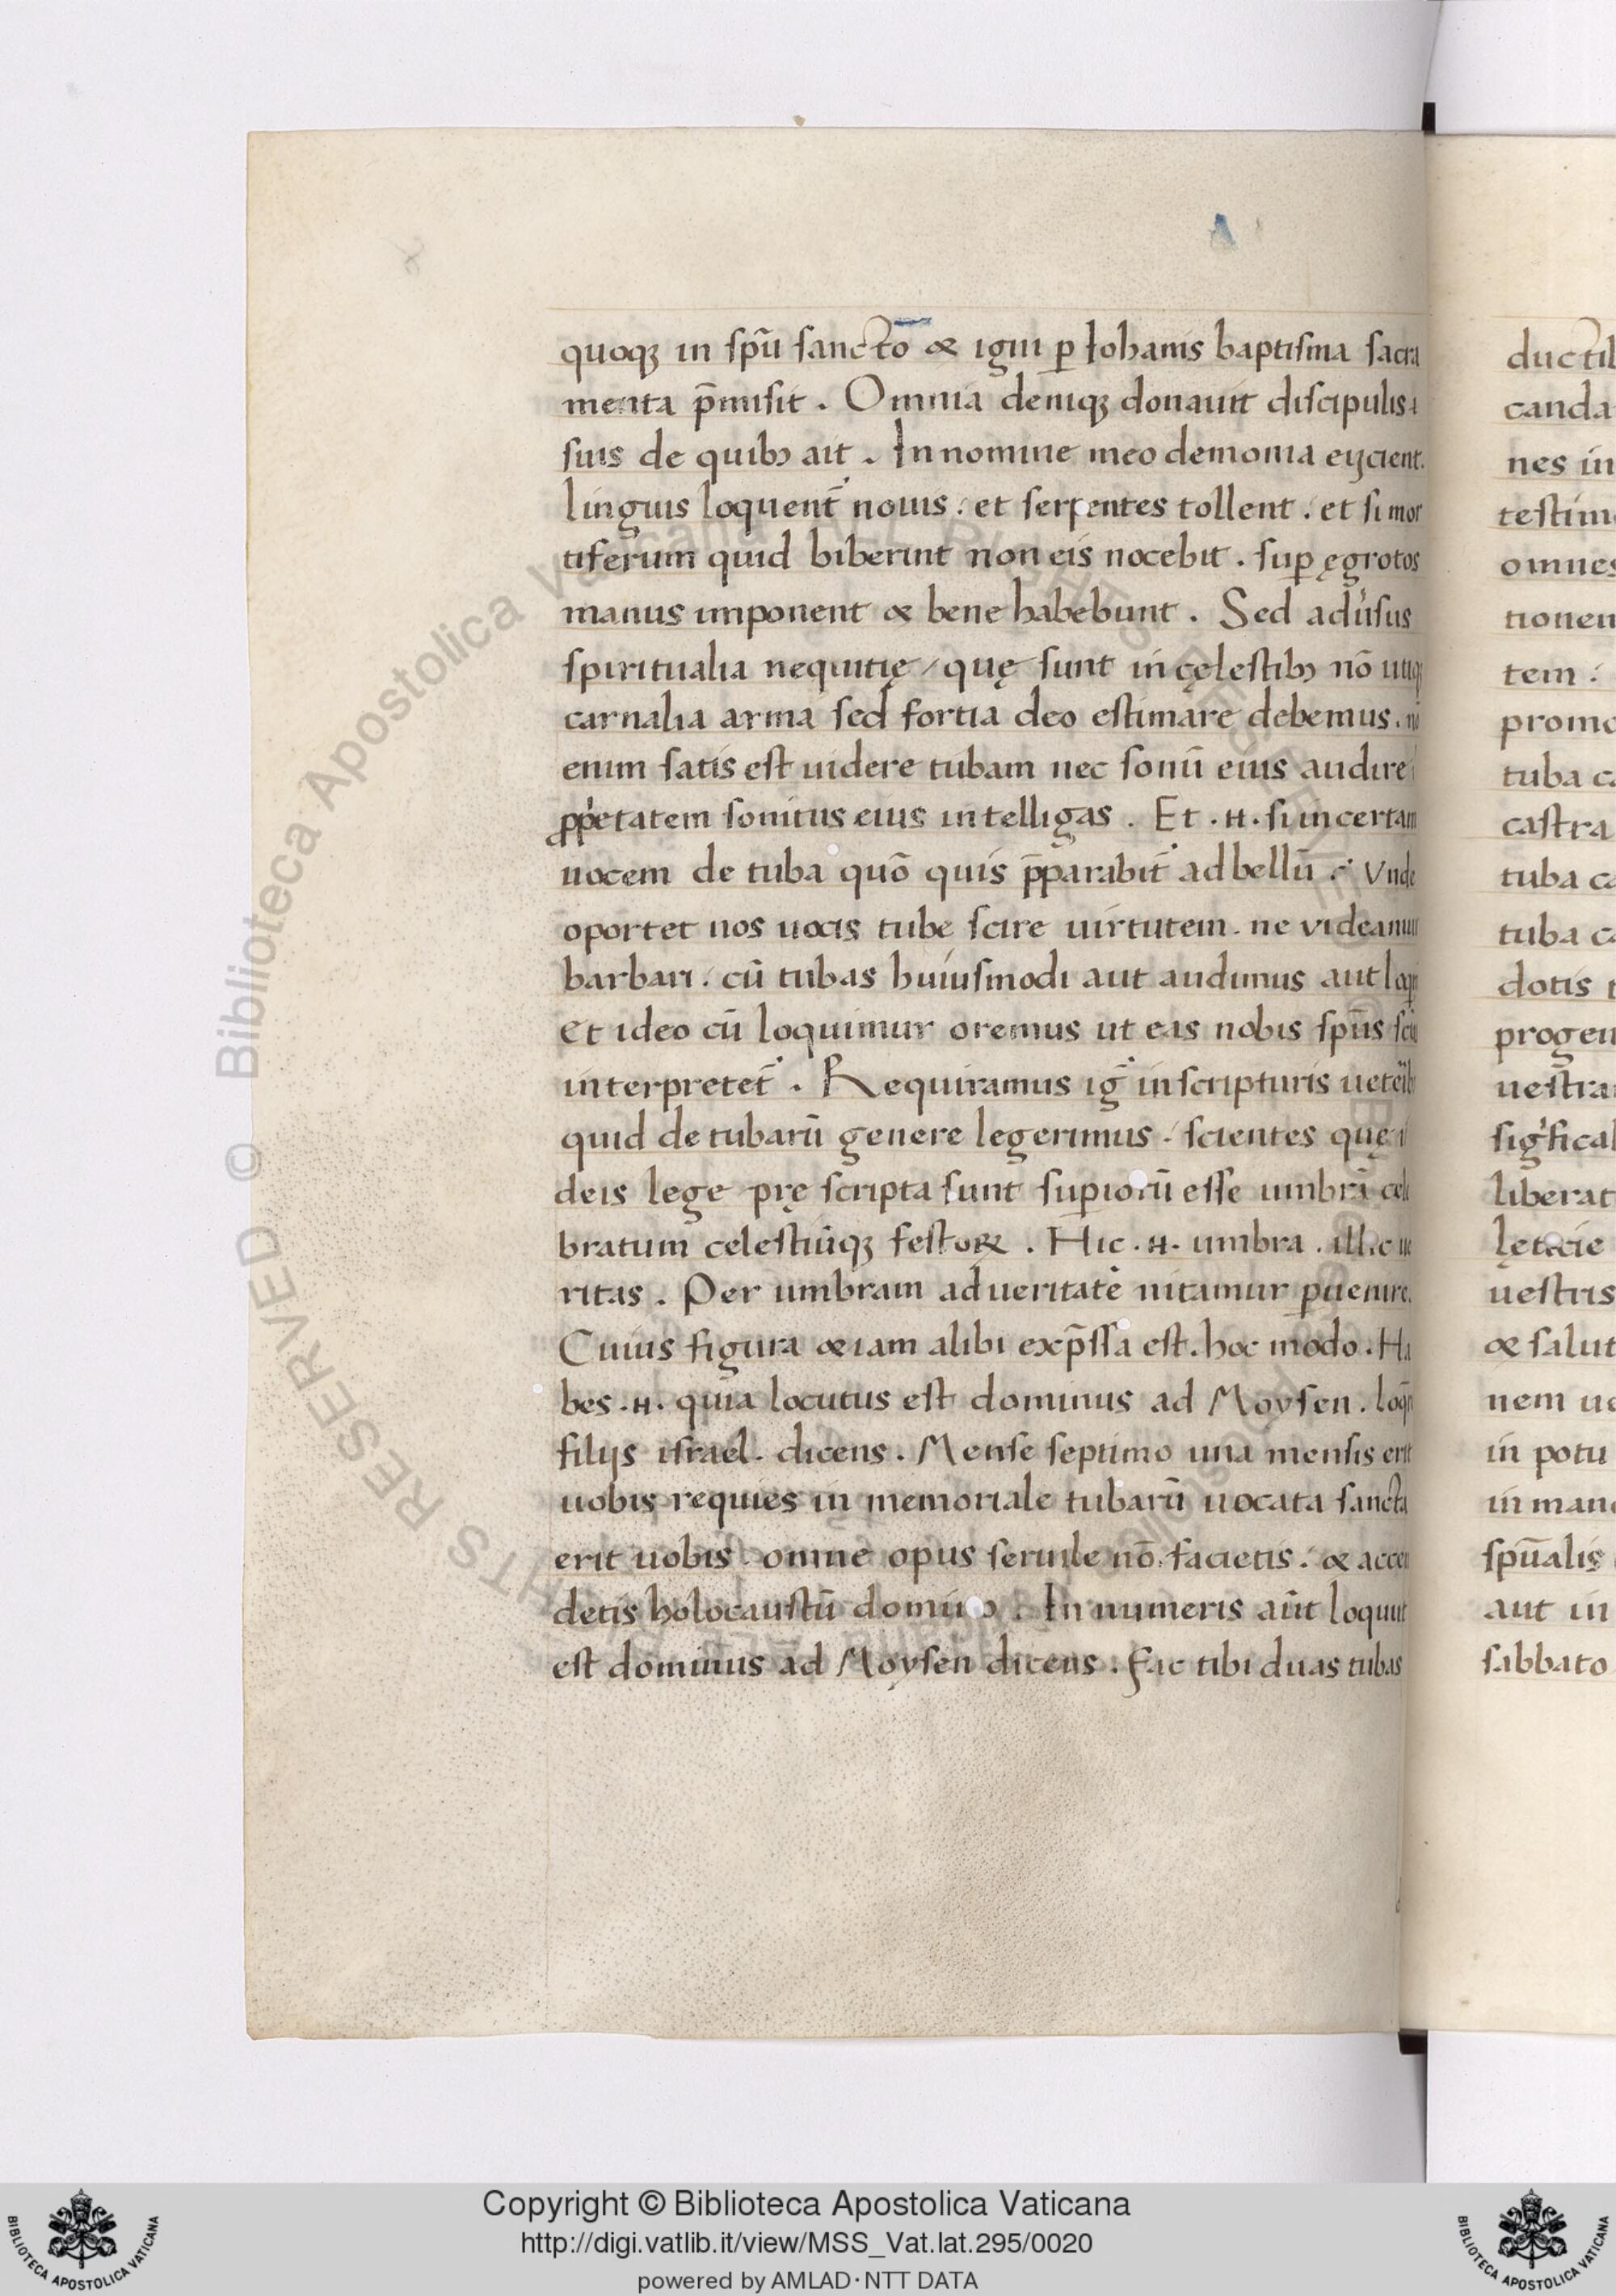 quoqꝫ in ſpū ſanctō & igni ꝑ Iohanis baptiſma ſacra
menta p̄miſit . Omnia deniqꝫ donauit diſcipulis
ſuis de quibꝫ ait . In nomine meo demonia eijcient.
linguis loquent̄ nouis : et ſerpentes tollent : et ſi mor
tiferum quid biberint non eis nocebit . ſuꝑ ęgrotos
manus imponent & bene habebunt . Sed adu̓ſus
ſpiritualia nequitię / quę ſunt in cęleſtibꝫ nō
carnalia arma ſed fortia deo eſtimare debemus .
enim ſatis eſt uidere tubam nec ſonū eius audire
ꝓp̓etatem ſonitus eius intelligas . Et . H . ſi incertam
uocem de tuba quō quis p̄parabit̄ ad bellū : Vnde
oportet nos uocis tubę ſcire uirtutem . ne videamur
barbari : cū tubas huiuſmodi aut audimus aut
Et ideo cū loquimur oremus ut eas nobis ſpūs
interpretet̄ . Requiramus ig̓ in ſcripturis
quid de tubarū genere legerimus : ſcientes quę
deis lege pręſcripta ſunt ſuꝑiorū eſſe umbrā
bratum celeſtiūqꝫ feſtoꝝ . Hic . H . umbra . illic ue
ritas . Per umbram ad ueritatē nitamur ꝑuenire.
Cuius figura &iam alibi exp̄ſſa eſt . hoc modo . Ha
bes . H . quia locutus eſt dominus ad Moyſen .
filijs iſrael . dicens . Menſe ſeptimo una menſis erit
uobis requies in memoriale tubarū uocata ſancta
erit uobis . omne opus ſeruile nō facietis : & accen
detis holocauſtū domino . In numeris aūt loquut
eſt dominus ad Moyſen dicens . Fac tibi duas tubas
ductil
canda
nes in
teſtim
omnes
tionem
tem :
promo
tuba ca
caſtra
tuba ca
tuba ca
dotis t
progen
ueſtra
ſig̓fical
liberat
lęticie
ueſtris
& ſalut
nem ue
in potu
in man
ſpūalis
aut in
ſabbato
© Biblioteca Apostolica Vaticana
ALL RIGHTS RESERVED
Copyright © Biblioteca Apostolica Vaticana
http://digi.vatlib.it/view/MSS_Vat.lat.295/0020
powered by AMLAD·NTT DATA
BIBLIOTECA APOSTOLICA VATICANA
BIBLIOTECA APOSTOLICA VATICANA